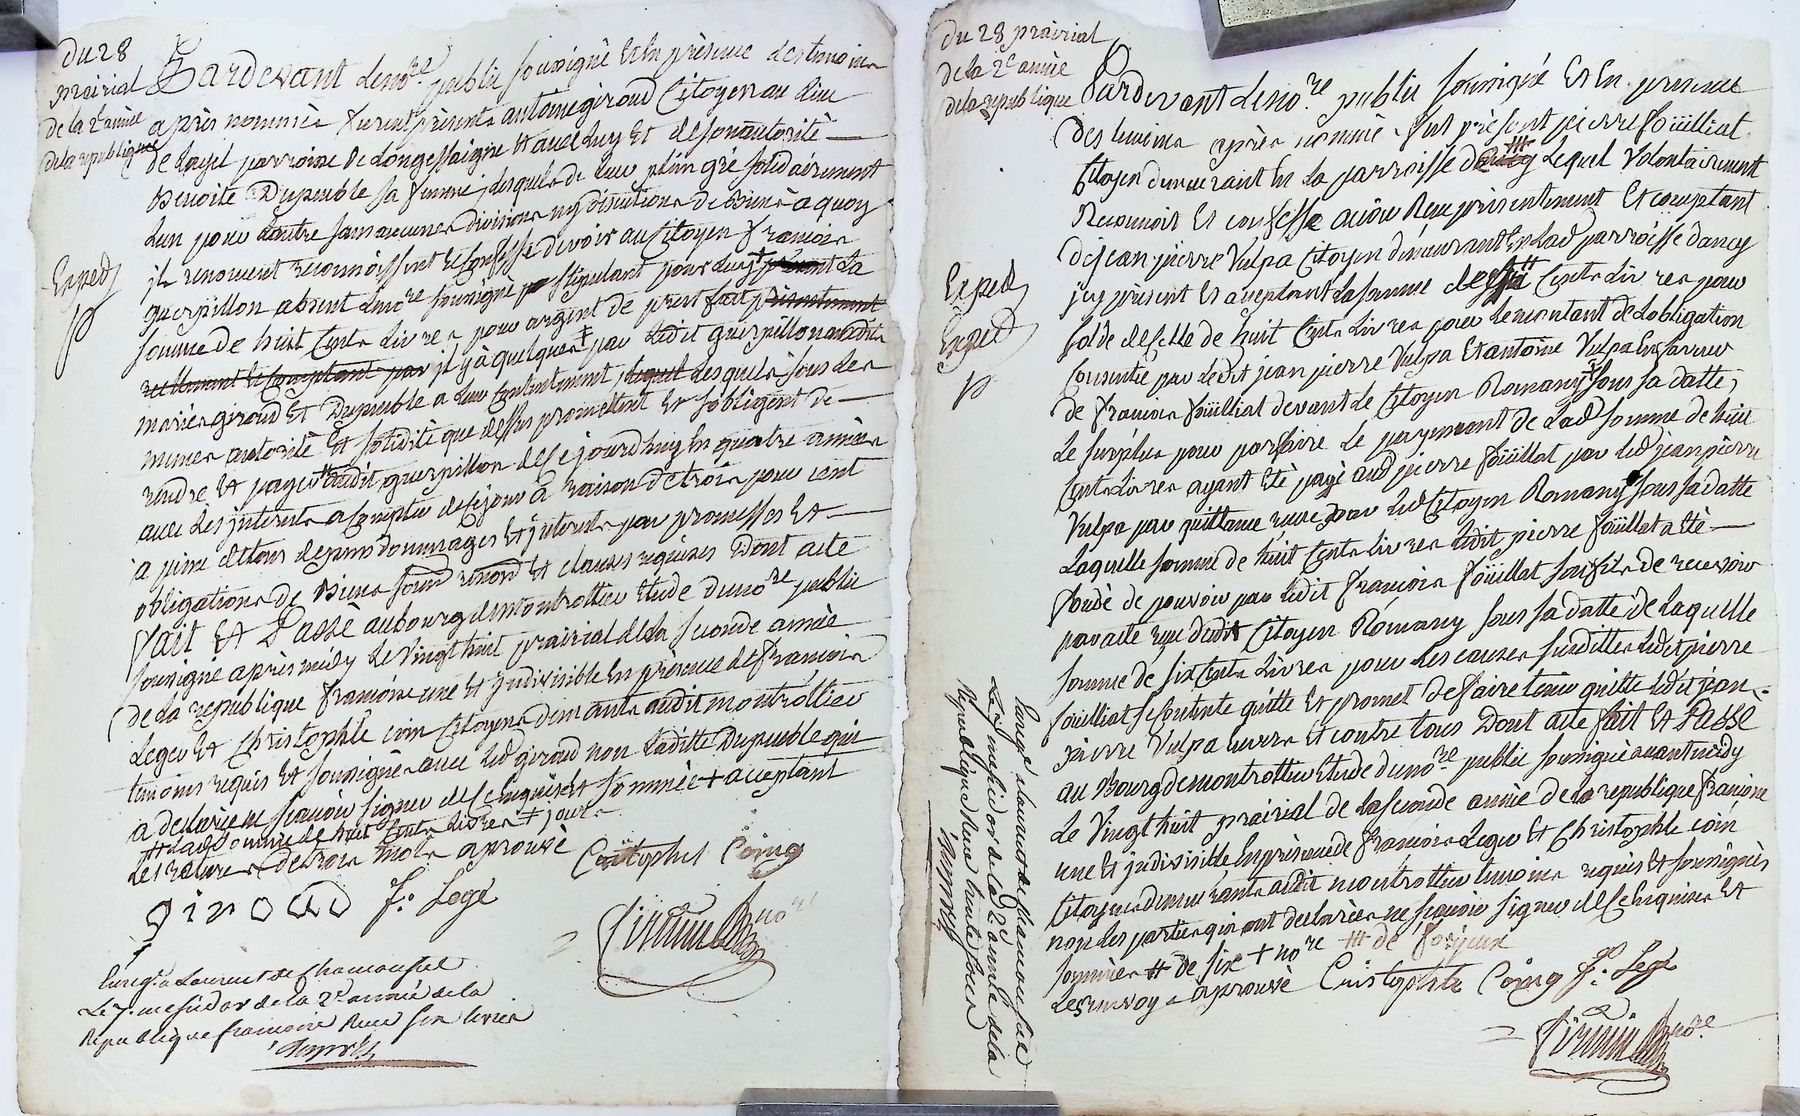 du 28
prairial
de la 2e année
de la republique
Exped
Pardevant le nore public soussigné Et En présence des temoins
après nommés furent présents antoine giroud Citoyen du lieu
de parroisse de Longessaigne Et avec luy Et de son autorité
Benoite Dupeuble sa femme lesquels de leur plein gré solidairement
L'un pour l'autre sans aucunes divisions ny discutions de Biens à quoy
ils renoncent reconnoissent Et Confesse devoir au Citoyen françois
guerpillon absent le nore soussigné stipulant pour luy La
somme de huit Cents Livres pour argent de prest fait presentement
reellement Et Comptant par il y à quelques par Ledit guerpillon audits
mariés giroud Et Dupeuble a leur Contentement lequel Lesquels sous les
mêmes autorité Et solidité que dessus promettent Et s'obligent de
rendre Et payer audit guerpillon de Ce jourdhuy En quatre années
avec Les interets a Compter de Ce jour à raison de trois pour cent
a peine de tous depens dommages Et interets par promesses Et
obligations de Biens Et clauses requises Dont acte
fait Et Passé au bourg de montrottier Etude du nore public
soussigné après midy Le Vingt huit prairial de La seconde année
de La republique françoise une Et indivisible En présence de françois
Legeu Et Christophle coin Citoyens audit montrottier
temoins requis Et soussignés avec Led giroud non Laditte Dupeuble qui
a declaré ne sçavoir signer de Ce Enquise Et sommée + acceptant
# Lad somme de huit Cents Livres ‡ jours
Les ratures de trois mots aprouvé
Cristophle Coing
giroud f. Legé
nore
Enreg. a Laurent de Chamousset
Le 7. messidor de la 2e année de la
Republique francoise Reçu six livres
du 28 prairial
de la 2e année
de la republique
Exped
Exped
Pardevant le nore public soussigné Et En presence
des temoins après nommés fut présent pierre foüilliat
Citoyen demeurant En La parroisse Lequel Volontairement
Reconnoit Et confesse avoir Reçu présentement Et comptant
de jean pierre Vulpa Citoyen demeurant En Lad parroisse dancy
icy présent Et acceptant La somme de Cents Livres pour
solde de Celle de huit Cents Livres pour Le montant de Lobligation
Consentie par Ledit jean pierre Vulpa Et antoine Vulpa En faveur
de françois foüilliat devant Le Citoyen Romany sous sa datte,
Le surplus pour parfaire Le payement de Lad somme de huit
Cents Livres ayant Eté payé aud pierre foüillat par Led jean pierre
Vulpa par quittance reçue par Led Citoyen Romany sous sa datte
Laquelle somme de huit Cents Livres Ledit pierre foüillat a Eté
fondé de pouvoir par Ledit françois foüillat son fils de recevoir
par acte reçu dudit Citoyen Romany sous sa datte de Laquelle
somme de six Cents Livres pour Les causes susdittes Ledit pierre
foüilliat se contente quitte Et promet de faire tenir quitte Ledit jean
pierre Vulpa envers Et contre tous Dont acte fait Et Passé
au Bourg de montrottier Etude du nore public soussigné avant midy
Le Vingt huit prairial de La seconde année de La republique françoise
une Et indivisible En présence de françois Legeu Et Christophle coin
Citoyens demeurants audit montrottier temoins requis Et soussignés
non Les parties qui ont declarées ne sçavoir signer de Ce Enquises Et
sommées # de six + nore
Les renvoys aprouvé
Cristophle Coing f. Legé
nore
Enregé a Laurent de Chamousset
Le 7 messidor de la 2e année de la
Republique Reçu trente sous